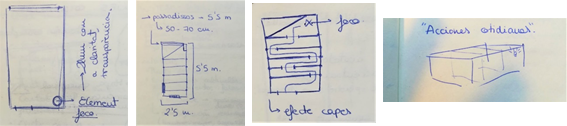 → Llum com
a claritat,
transparència.
→ Element
foco.
→ passadissos - 5'5 m
↳ 50 - 70 cm.
5'5 m.
2'5 m.
→ foco.
↳ efecte capes
"Acciones cotidianas".